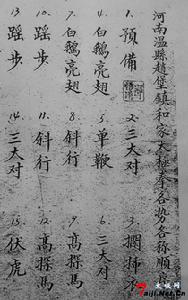 河南温縣趙堡鎮和家太極拳各势名称順
1、預備
2、三大对
3、攔 衣
4、白鵝亮翅
5、单鞭
6、三大对
7、白鵝亮翅
8、斜行
9、高探馬
10、 步
11、斜行
12、高探馬
13、 步
14、三大对
15、伏虎